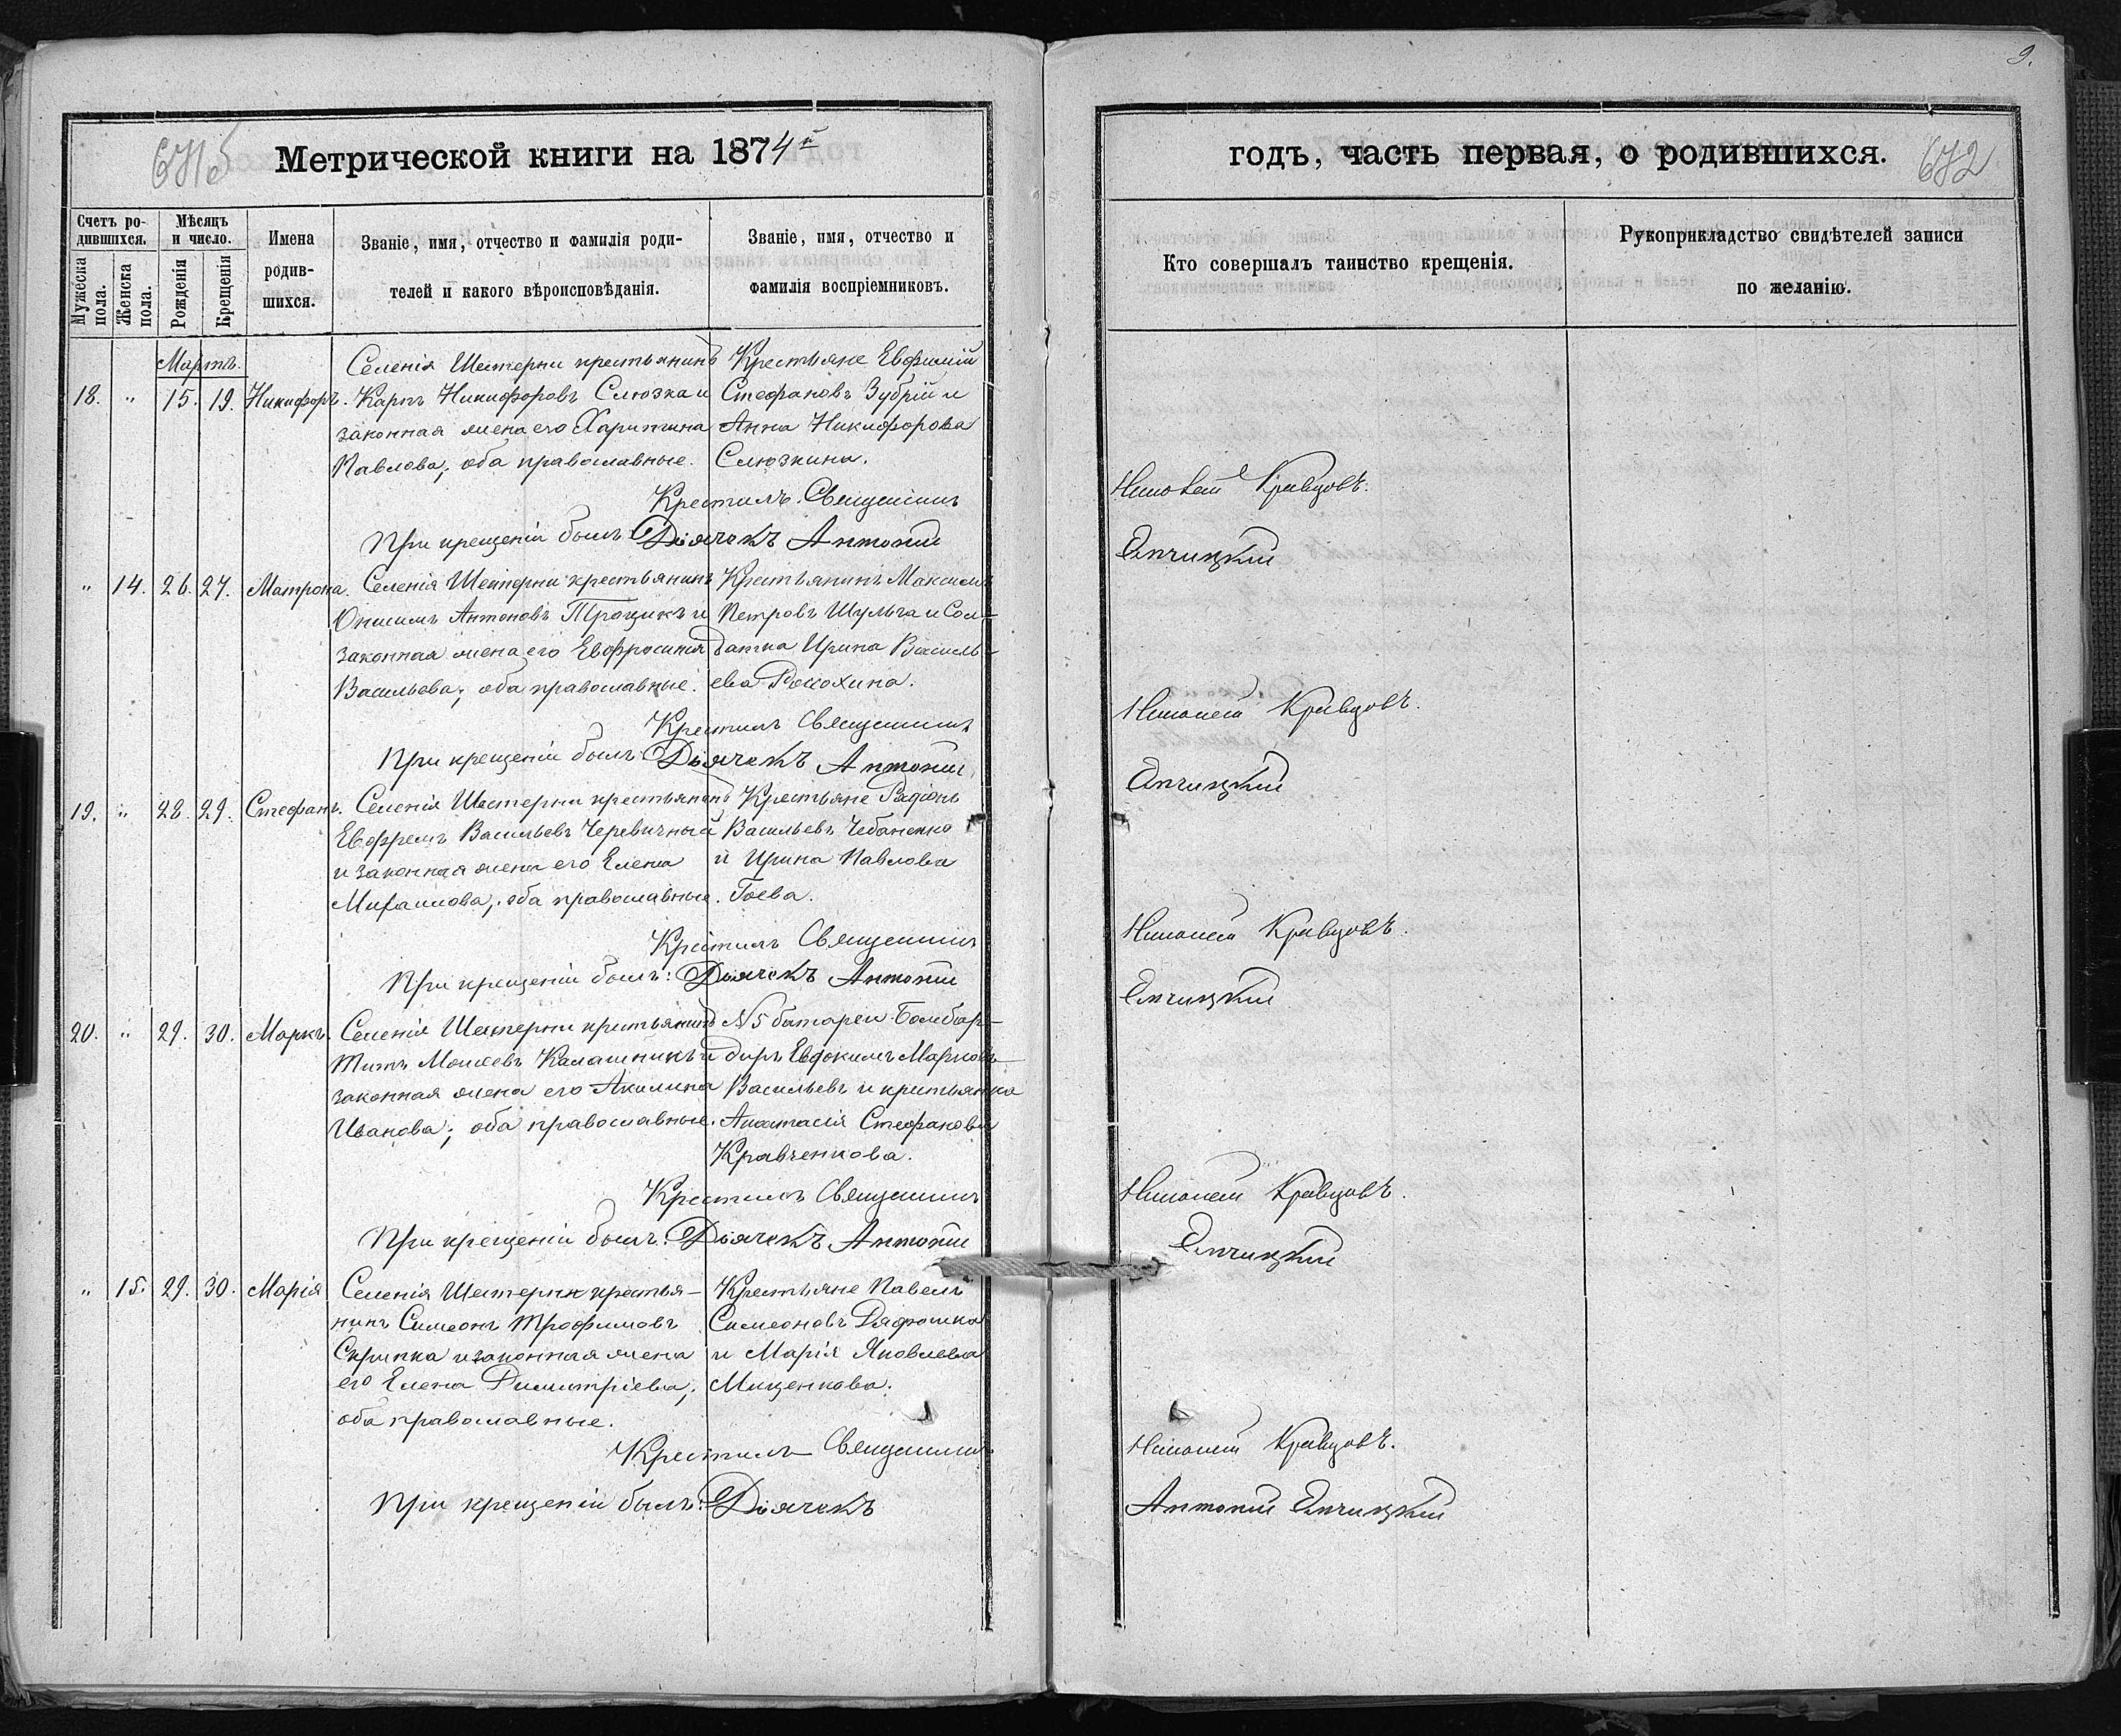 671б
Метрической книги на 1874й
Счетъ ро-
дившихся.
Мужеска
пола.
Женска
пола.
Мѣсяцъ
и число.
Рожденія
Крещенія
Имена
родив-
шихся.
Званіе, имя, отчество и фамилія роди-
телей и какого вѣроисповѣданія.
Званіе, имя, отчество и
фамилія воспріемниковъ.
Мартъ.
18. " 15. 19. Никифоръ.
Селенія Шестерни крестьянинъ
Карпъ Никифоровъ Слюзка и
законная жена его Харитина
Павлова; оба православные.
Крестьяне Евфимій
Стефановъ Зубрій и
Анна Никифорова
Слюзкина.
Крестилъ Священникъ
При крещеніи былъ: Дьячекъ Антоній
" 14. 26. 27. Матрона.
Селенія Шестерни крестьянинъ
Онисимъ Антоновъ Троцикъ и
законная жена его Евфросинія
Васильева; оба православные.
Крестьянинъ Максимъ
Петровъ Шульга и Сол-
датка Ирина Василь-
ева
Крестилъ Священникъ
При крещеніи былъ: Дьячекъ Антоній
19. " 28. 29. Стефанъ.
Селенія Шестерни крестьянинъ
Евфремъ Васильевъ Черевичный
и законная жена его Елена
Михаилова; оба православные.
Крестьяне Радіонъ
Васильевъ Чебаненко
и Ирина Павлова
Гоева.
Крестилъ Священникъ
При крещеніи былъ: Дьячекъ Антоній
20. " 29. 30. Маркъ.
Селенія Шестерни крестьянинъ
Титъ Моисеевъ Калашникъ и
законная жена его Акилина
Иванова; оба православные.
N 5 батареи Бомбар-
диръ Евдокимъ Марковъ
Васильевъ и крестьянка
Анастасія Стефанова
Кравченкова.
Крестилъ Священникъ
При крещеніи былъ: Дьячекъ Антоній
" 15. 29. 30. Марія
Селенія Шестерни крестья-
нинъ Симеонъ Трофимовъ
Скрипка и законная жена
его Елена Димитріева;
оба православные.
Крестьяне Павелъ
Симеоновъ
и Марія Яковлева
Мищенкова.
Крестилъ Священникъ
При крещеніи былъ: Дьячекъ
9.
годъ, часть первая, о родившихся.
672
Кто совершалъ таинство крещенія.
Рукоприкладство свидѣтелей записи
по желанію.
Кравцовъ.
Кравцовъ.
Кравцовъ.
Кравцовъ.
Кравцовъ.
Антоній